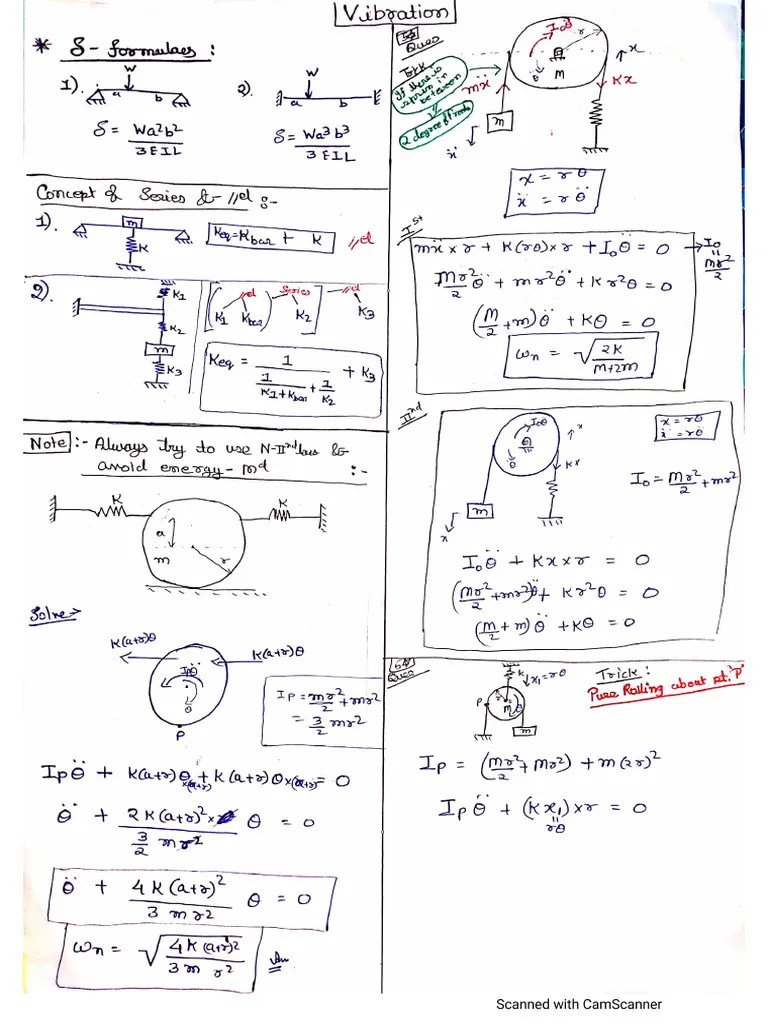 Vibration
* δ - formulaes :
1).
W
a
b
δ = Wa²b²
3EIL
2).
W
a
b
δ = Wa³b³
3EIL
Concept of Series & //el :-
1).
m
K
Keq = Kbar + K
//el
2)
K1
K2
m
K3
//el
Series
//el
K1 Kbar
K2
K3
Keq = 1
1/K1+Kbar + 1/K2
+ K3
Note :- Always try to use N-IInd law &
avoid energy - md :-
K
K
a
m
r
Solve →
K(a+r)θ
K(a+r)θ
Ipθ̈
P
Ip = mr²/2 + mr²
= 3/2 mr²
Ipθ̈ + K(a+r)θ×(a+r) + K(a+r)θ×(a+r) = 0
θ̈ + 2K(a+r)²× θ = 0
3/2 mr²
θ̈ + 4K(a+r)² θ = 0
3 m r2
ωn = √4K(a+r)²
3 m r²
Ans
Ques
I0θ̈
r
x
θ
M
Trick
If there is
spring in
between
2 degree of freedom
mẍ
Kx
m
ẍ
x = rθ
ẍ = rθ̈
Ist
mẍ×r + K(rθ)×r + I0θ̈ = 0 → I0
Mr²/2
Mr²/2 θ̈ + mr²θ̈ + Kr²θ = 0
(M/2 + m)θ̈ + Kθ = 0
ωn = √2K
M+2m
IInd
I0θ̈
x
θ
Kx
m
x
x = rθ
ẍ = rθ̈
I0 = Mr²/2 + mr²
I0θ̈ + Kx×r = 0
(Mr²/2 + mr²)θ̈ + Kr²θ = 0
(M/2 + m)θ̈ + Kθ = 0
Ques
K
x1=rθ
P
M
m
Trick :
Pure Rolling about pt. 'P'
Ip = (Mr²/2 + Mr²) + m(2r)²
Ipθ̈ + (Kx1)×r = 0
rθ
Scanned with CamScanner